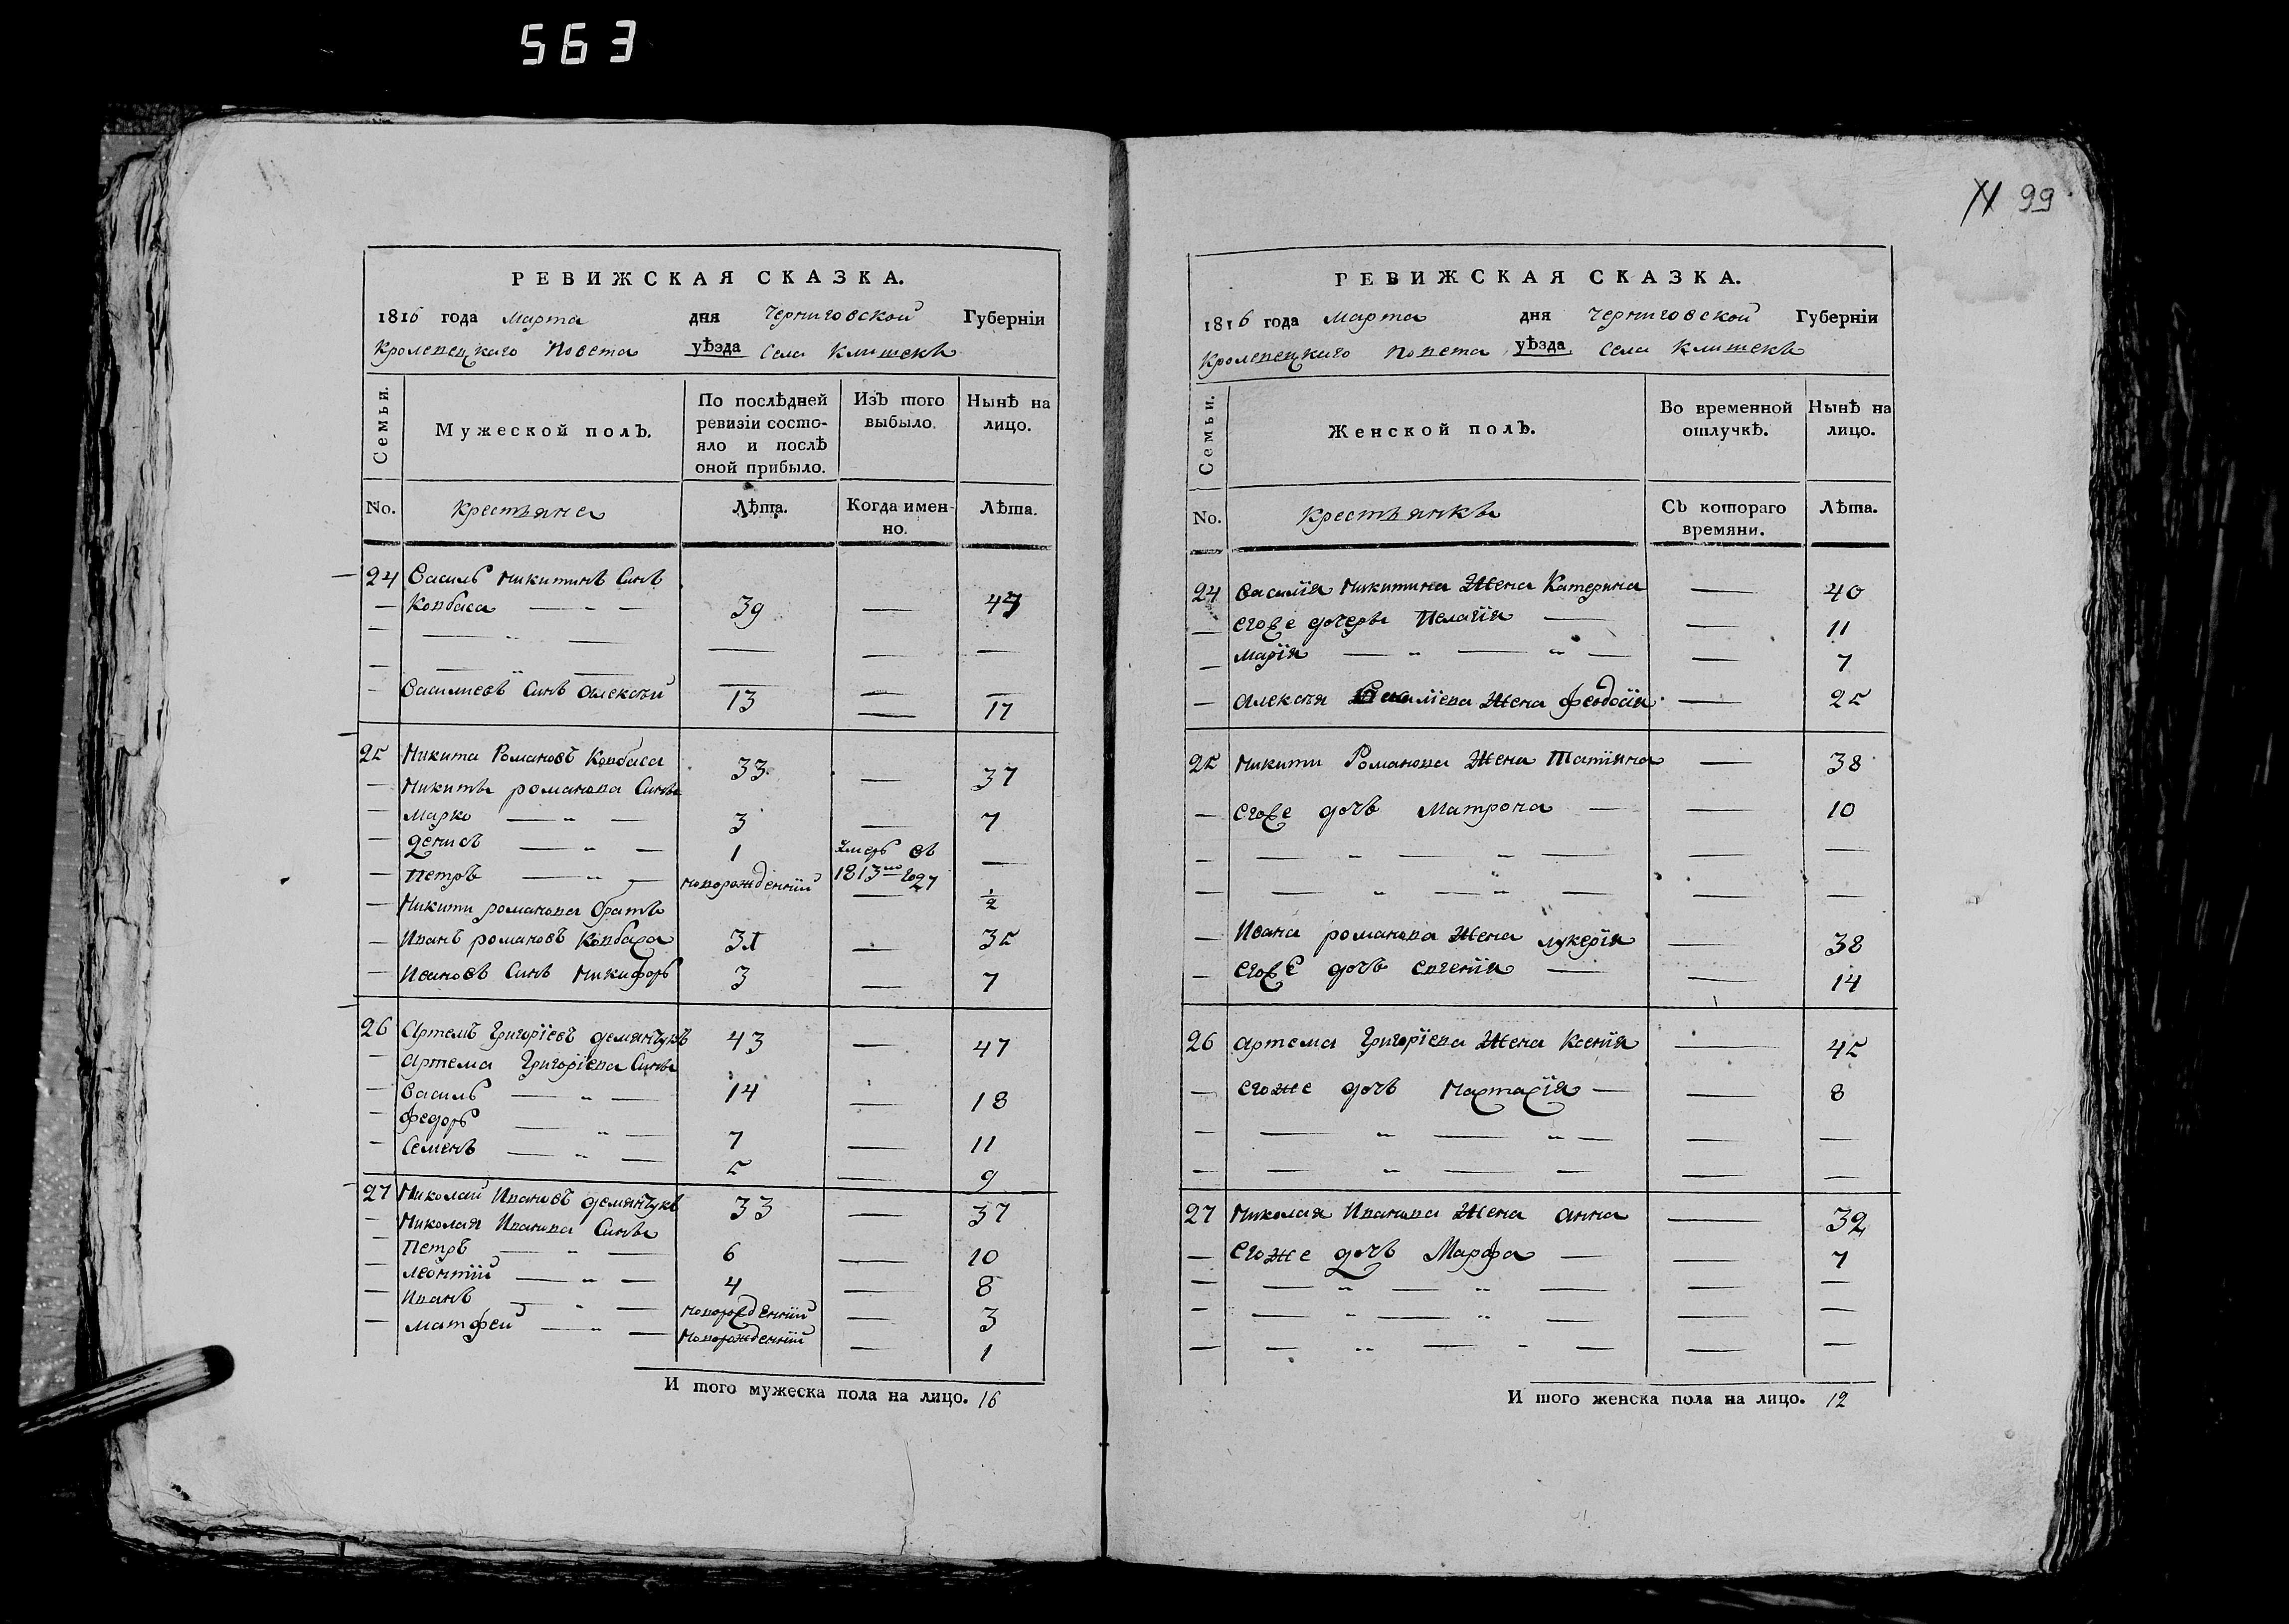 563
РЕВИЖСКАЯ СКАЗКА.
1816 года Марта дня Черниговской Губерніи
Кролевецкаго Повета уѣзда Села Клишекъ
Семьи.
Мужеской полъ.
По послѣдней ревизіи состояло и послѣ оной прибыло.
Изъ того выбыло.
Нынѣ на лицо.
No.
Крестьяне
Лѣта.
Когда именно.
Лѣта.
24 Василь Никитинъ Синъ
— Ковбаса — „ — 39 — 43
— — „ — — — —
— — — — — —
— Василиевъ Синъ Алексѣй 13 — 17
25 Никита Романовъ Ковбаса 33 — 37
— Никиты романова Сины
— Марко — „ — 3 — 7
— Денисъ — „ — 1 Умеръ въ 1813мъ году —
— Петръ — „ — новорожденній — ½
— Никити романова братъ
— Иванъ романовъ Ковбаса 31 — 35
— Ивановъ Синъ Никифоръ 3 — 7
26 Артемъ Григоріевъ демянчукъ 43 — 47
— Артема Григоріева Сины
— Василь — „ — 14 — 18
— Федоръ — „ — 7 — 11
— Семенъ — „ — 5 — 9
27 Николай Ивановъ демянчукъ 33 — 37
— Николая Иванова Сины
— Петръ — „ — 6 — 10
— Леонтій — „ — 4 — 8
— Иванъ — „ — новорожденній — 3
— Матфей — „ — новорожденній — 1
И того мужеска пола на лицо. 16
99
РЕВИЖСКАЯ СКАЗКА.
1816 года Марта дня Черниговской Губерніи
Кролевецкаго Повета уѣзда Села Клишекъ
Семьи.
Женской полъ.
Во временной отлучкѣ.
Нынѣ на лицо.
No.
Крестьянкы
Съ котораго времяни.
Лѣта.
24 Василія Никитина Жена Катерина — 40
— егоже дочеры Пелагія — — 11
— Марія — „ — „ — — 7
— Алексѣя Василіева Жена Феодосія — 25
25 Никити Романова Жена Татіяна — 38
— Егоже дочь Матрона — — 10
— — „ — „ — — —
— — „ — „ — — —
— Ивана романова Жена лукерія — 38
— Егоже дочь Евгенія — — 14
26 Артема Григоріева Жена Ксенія — 45
— Егоже дочь Настасія — — 8
— — „ — „ — — —
— — „ — — — —
27 Николая Иванова Жена Анна — 32
— Егоже дочь Марфа — — 7
— — „ — „ — — —
— — „ — „ — — —
— — „ — „ — — —
И того женска пола на лицо. 12